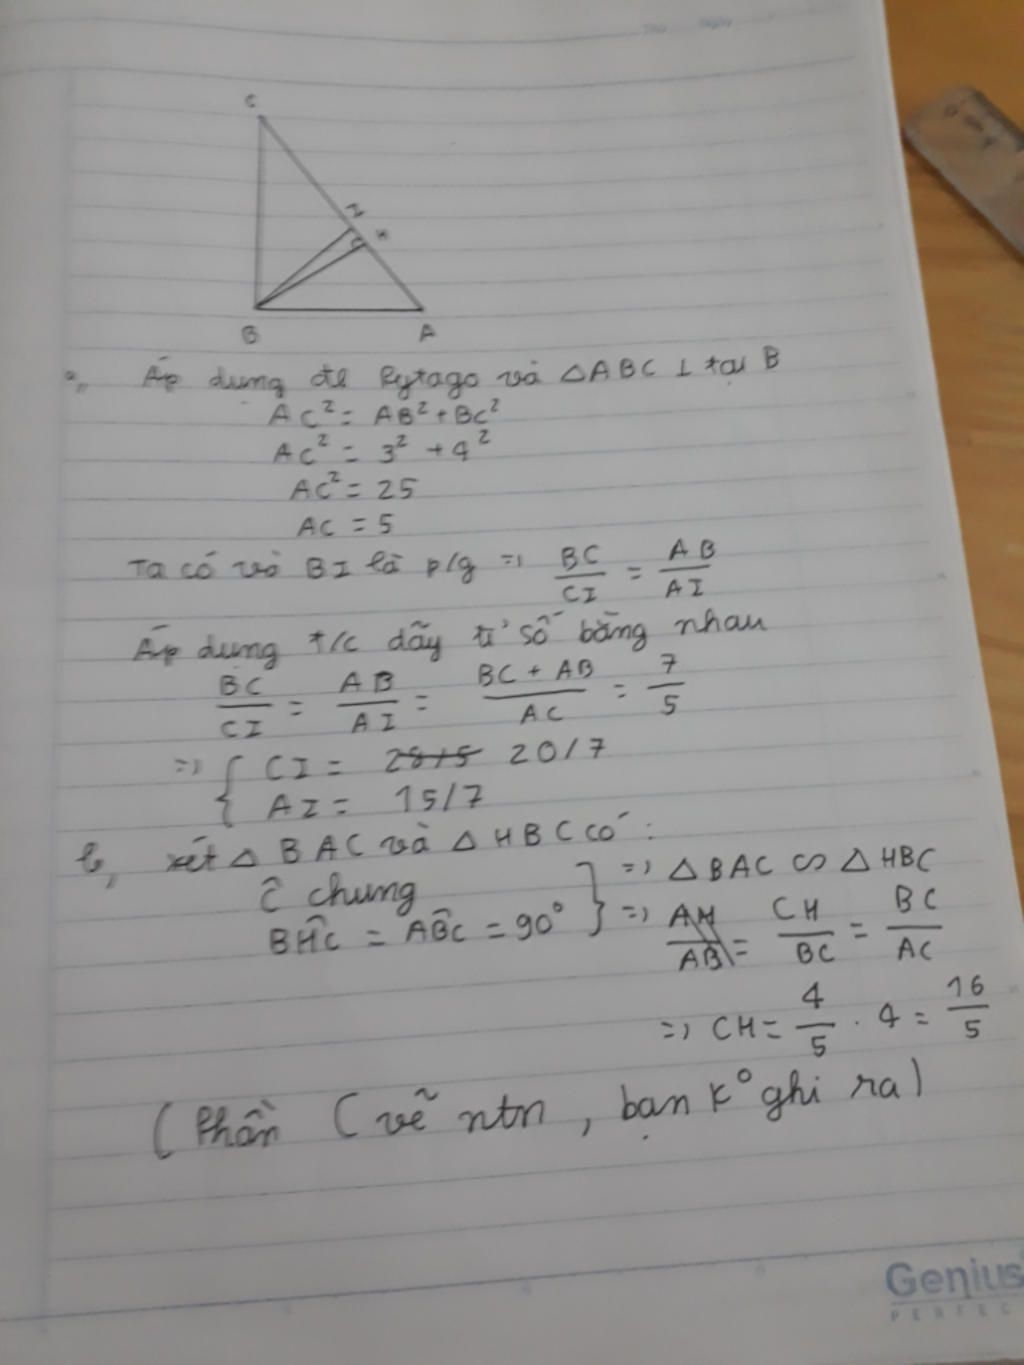 Thứ Ngày
C
I
H
B
A
a, Áp dụng đl Pytago và △ABC ⊥ tại B
AC² = AB² + BC²
AC² = 3² + 4²
AC² = 25
AC = 5
Ta có vò BI là p/g => BC/CI = AB/AI
Áp dụng t/c dãy tỉ số bằng nhau
BC/CI = AB/AI = BC + AB/AC = 7/5
=> { CI = 28/5 20/7
AI = 15/7
b, xét △ BAC và △ HBC có :
Ĉ chung } => △BAC ∽ △HBC
BĤC = AB̂C = 90° } => AH/AB = CH/BC = BC/AC
=> CH = 4/5 . 4 = 16/5
(Phần C vẽ ntn , bạn k° ghi ra)
Genius
PERFEC